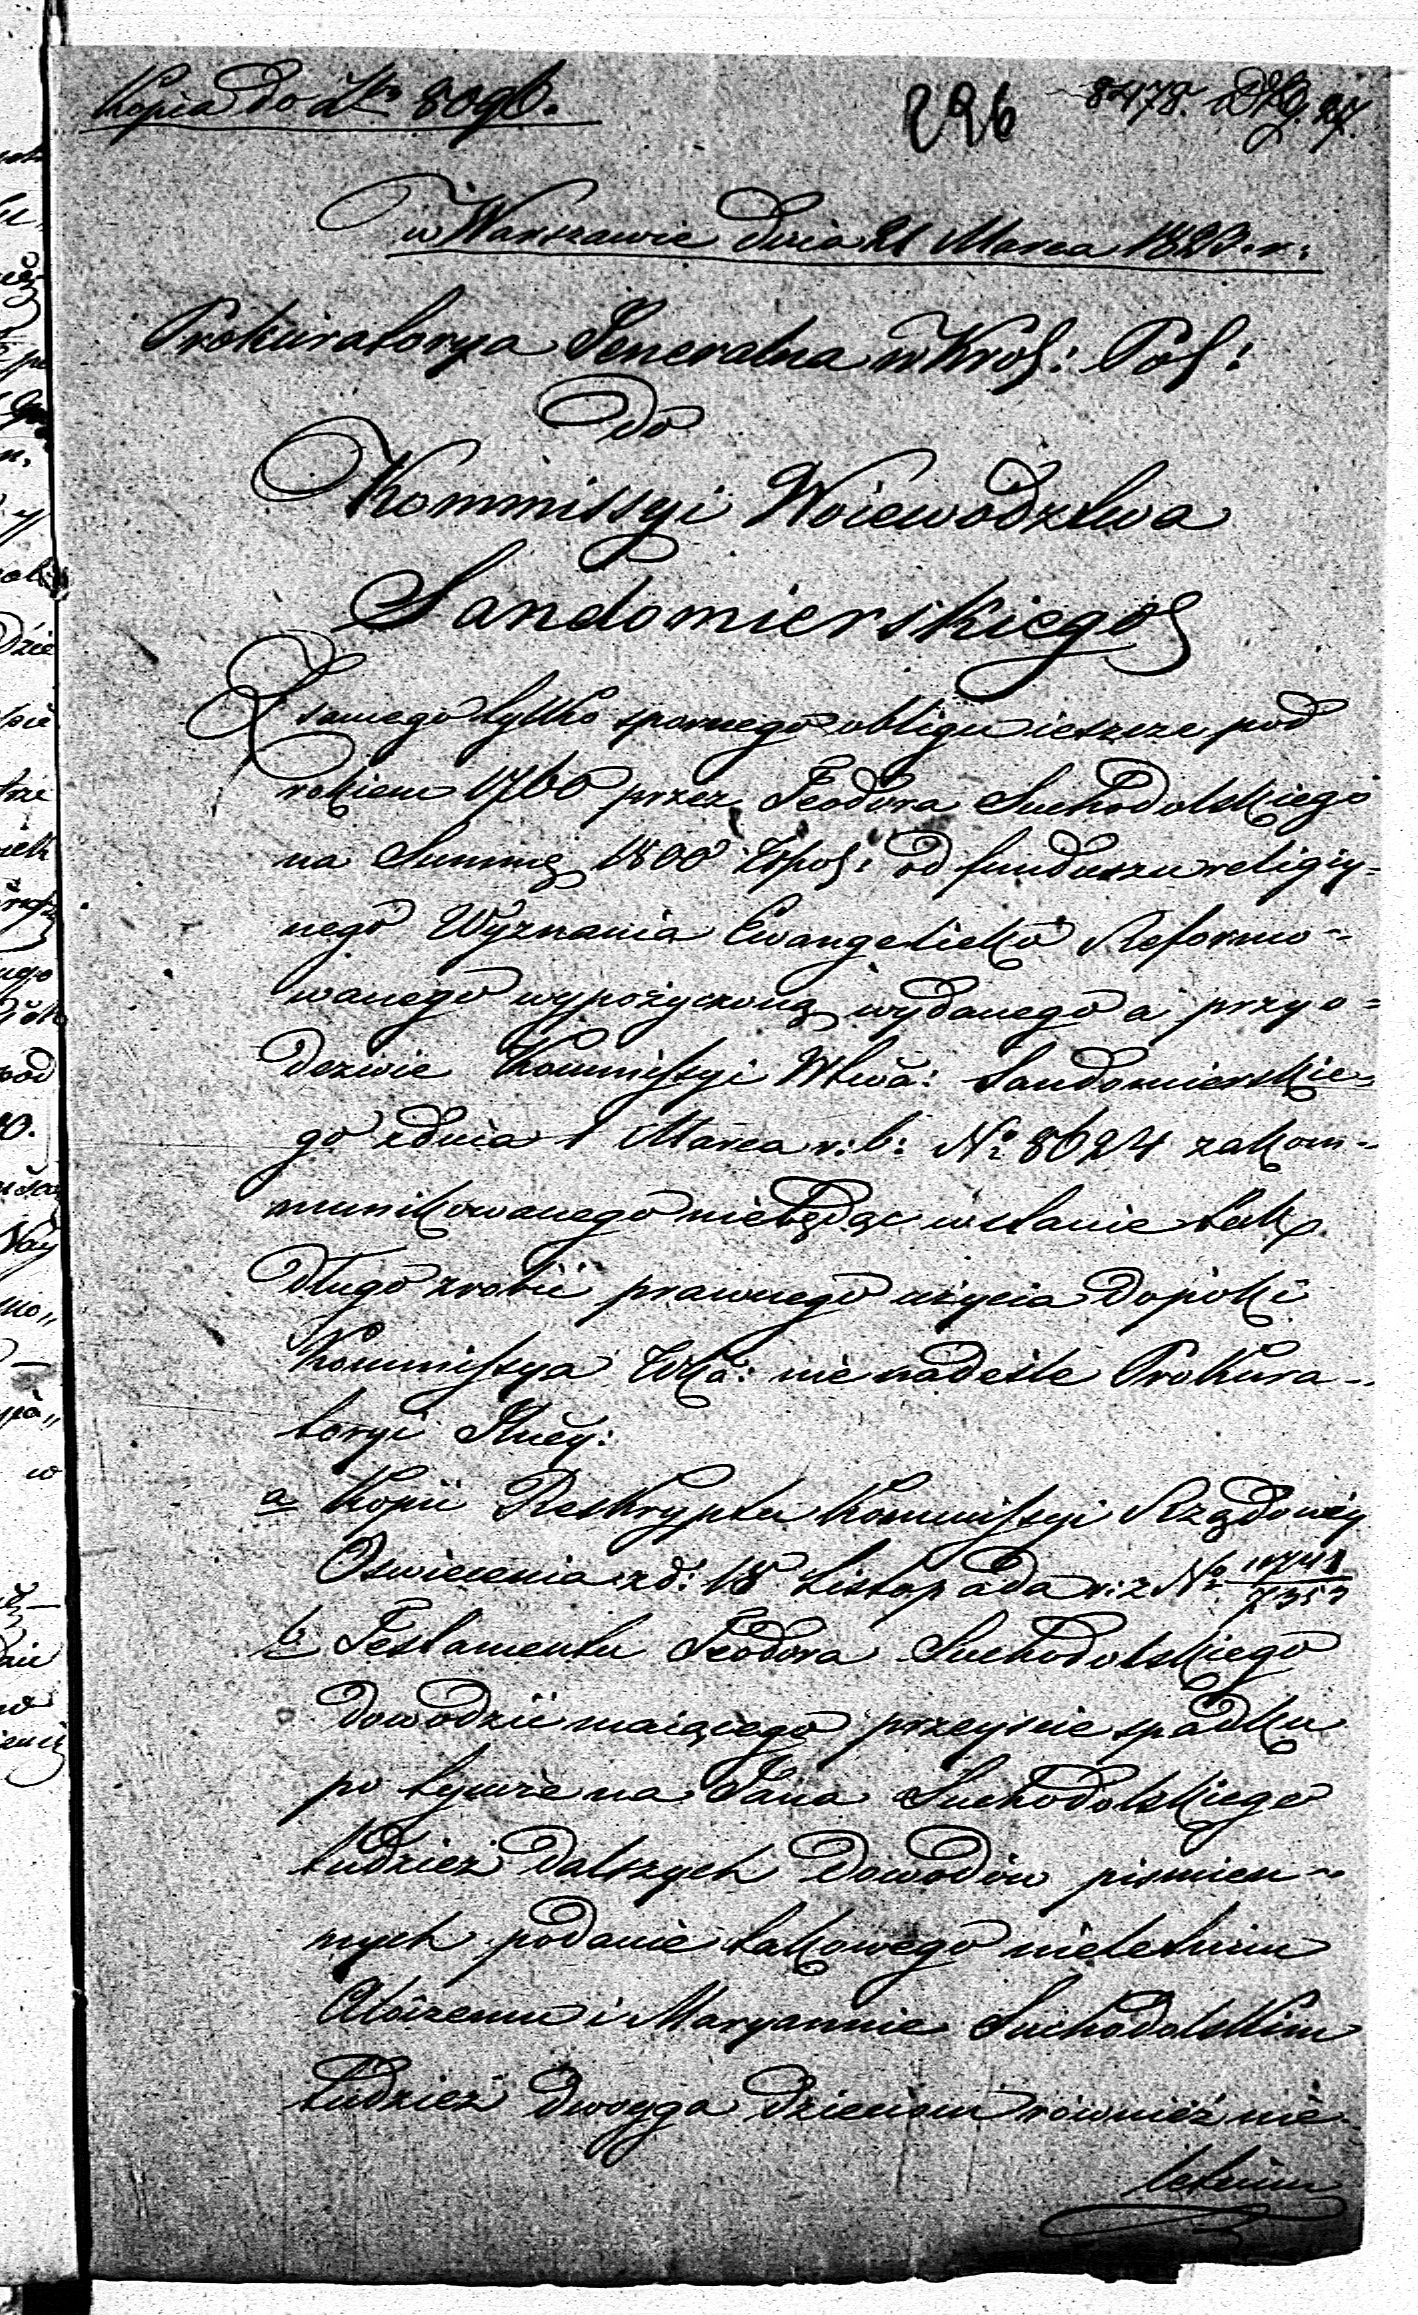 Kopia do Nro 8090.
226
8478.
w Warszawie dnia 21 Marca 1823 r:
Prokuratorya Jeneralna w Król: Pol:
do
Kommissyi Woiewództwa
Sandomierskiego
Z samego tylko spornego obligu ieszcze pod
rokiem 1766 przez Teodora Suchodolskiego
na Summę 1800 Złpol: od funduszu religiy-
nego Wyznania Ewangelicko Reformo-
wanego wypożyczoną wydanego a przy o-
dezwie Kommissyi Wtwa: Sandomierskie-
go z dnia 1 Marca r: b: No 8624 zakom-
munikowanego niebędąc w stanie tak
długo zrobić prawnego użycia dopóki
Kommissya Wzka: nie nadeśle Prokura-
toryi Jlney:
a Kopii Reskryptu Kommissyi Rządowey
Oswiecenia z d: 18 Listopada r: z No
b Testamentu Teodora Suchodolskiego
dowodzić maiącego przeyście spadku
po tymże na Jana Suchodolskiego
tudzież dalszych dowodów pismien-
nych podanie takowego nieletnim
Aloizemu i Maryannie Suchodolskim
tudzież dwoyga dzieciom również nie-
letnim